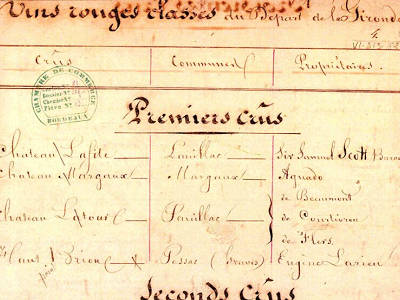 Vins rouges classés du Départ. de la Gironde
Crûs Communes Propriétaires.
CHAMBRE DE COMMERCE
BORDEAUX
Premiers Crûs
Chateau Lafite Pauillac Sir Samuel Scott
Chateau Margaux Margaux Aguado
de Beaumont
Chateau Latour Pauillac de Courtivron
de Flers.
Haut Brion Pessac (Graves) Eugène Larieu
Seconds Crûs